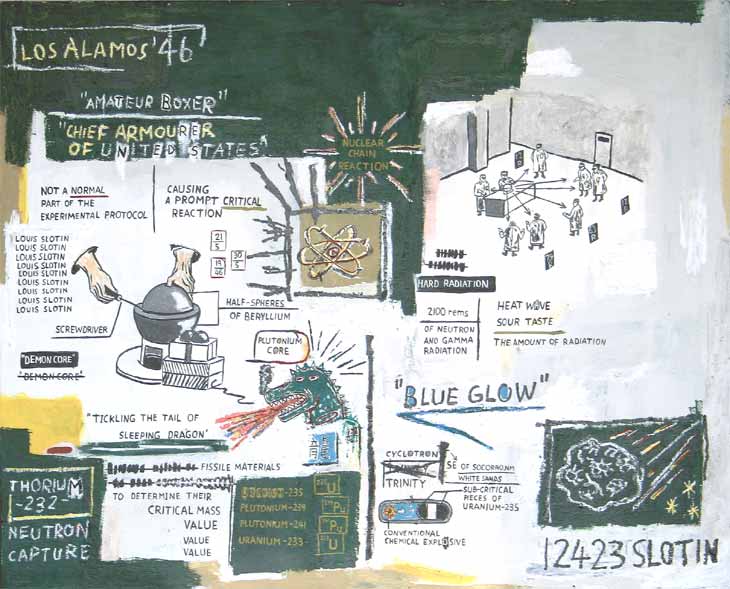 LOS ALAMOS '46
"AMATEUR BOXER"
"CHIEF ARMOURER
OF UNITED STATES"
NUCLEAR
CHAIN
REACTION
NOT A NORMAL
PART OF THE
EXPERIMENTAL PROTOCOL
CAUSING
A PROMPT CRITICAL
REACTION
LOUIS SLOTIN
LOUIS SLOTIN
LOUIS SLOTIN
LOUIS SLOTIN
LOUIS SLOTIN
LOUIS SLOTIN
LOUIS SLOTIN
LOUIS SLOTIN
LOUIS SLOTIN
21
5
19
46
30
5
HALF-SPHERES
OF BERYLLIUM
SCREWDRIVER
PLUTONIUM
CORE
"DEMON CORE"
"DEMON CORE"
"TICKLING THE TAIL OF
SLEEPING DRAGON"
龍
HARD RADIATION
2100 rems
OF NEUTRON
AND GAMMA
RADIATION
HEAT WAVE
SOUR TASTE
THE AMOUNT OF RADIATION
"BLUE GLOW"
THORIUM
-232-
NEUTRON
CAPTURE
FISSILE MATERIALS
TO DETERMINE THEIR
CRITICAL MASS
VALUE
VALUE
VALUE
-235
U
PLUTONIUM-239
Pu
PLUTONIUM-241
Pu
URANIUM-233
U
CYCLOTRON
TRINITY
TRINITY
SE OF SOCORRO, NM
WHITE SANDS
SUB-CRITICAL
PIECES OF
URANIUM-235
CONVENTIONAL
CHEMICAL EXPLOSIVE
12423 SLOTIN